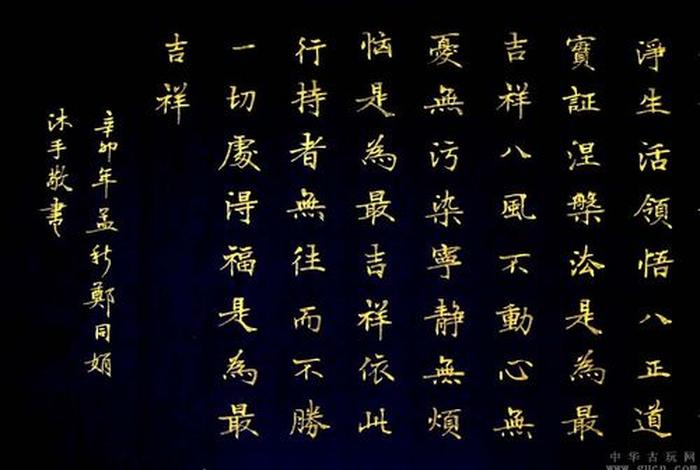 淨生活領悟八正道
寶証涅槃法是為最
吉祥八風不動心無
憂無污染寧静無煩
惱是為最吉祥依此
行持者無往而不勝
一切處得福是為最
吉祥
辛卯年孟秋鄭同娟
沐手敬書
中华古玩网
www.gucn.com